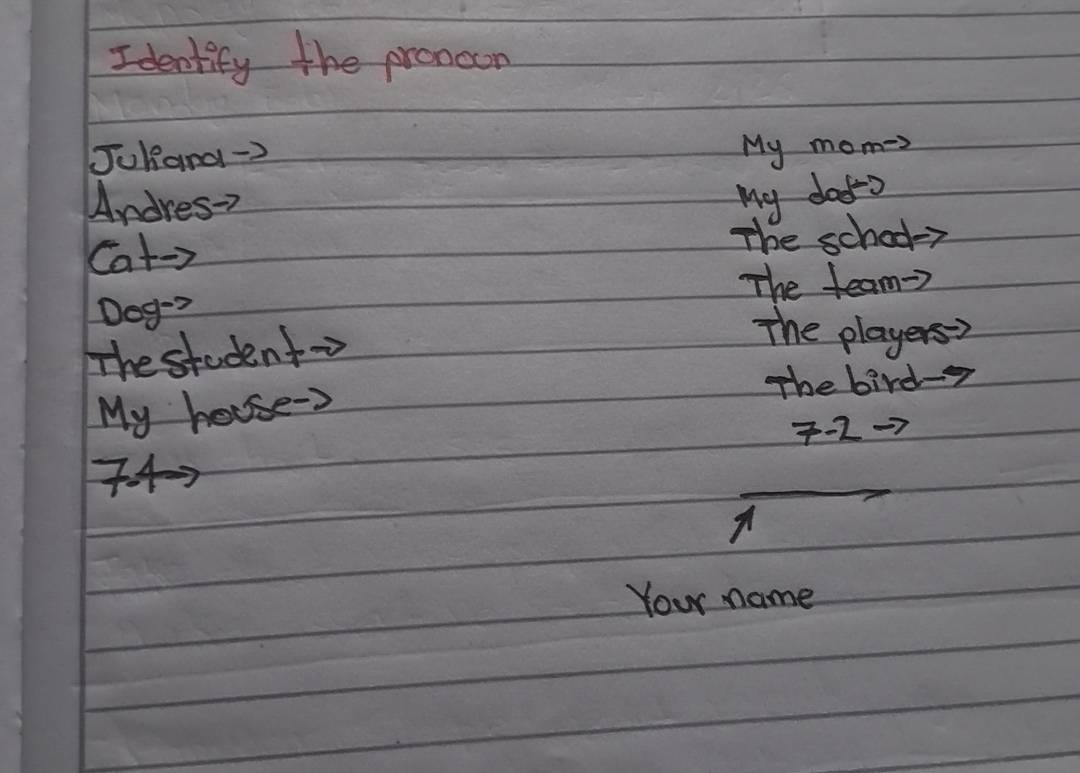 Identify the pronoun
Juliana->
Andres->
Cat->
Dog->
The student->
My house->
7-4->
My mom->
My dad->
The school->
The team->
The players->
The bird->
7-2->
Your name